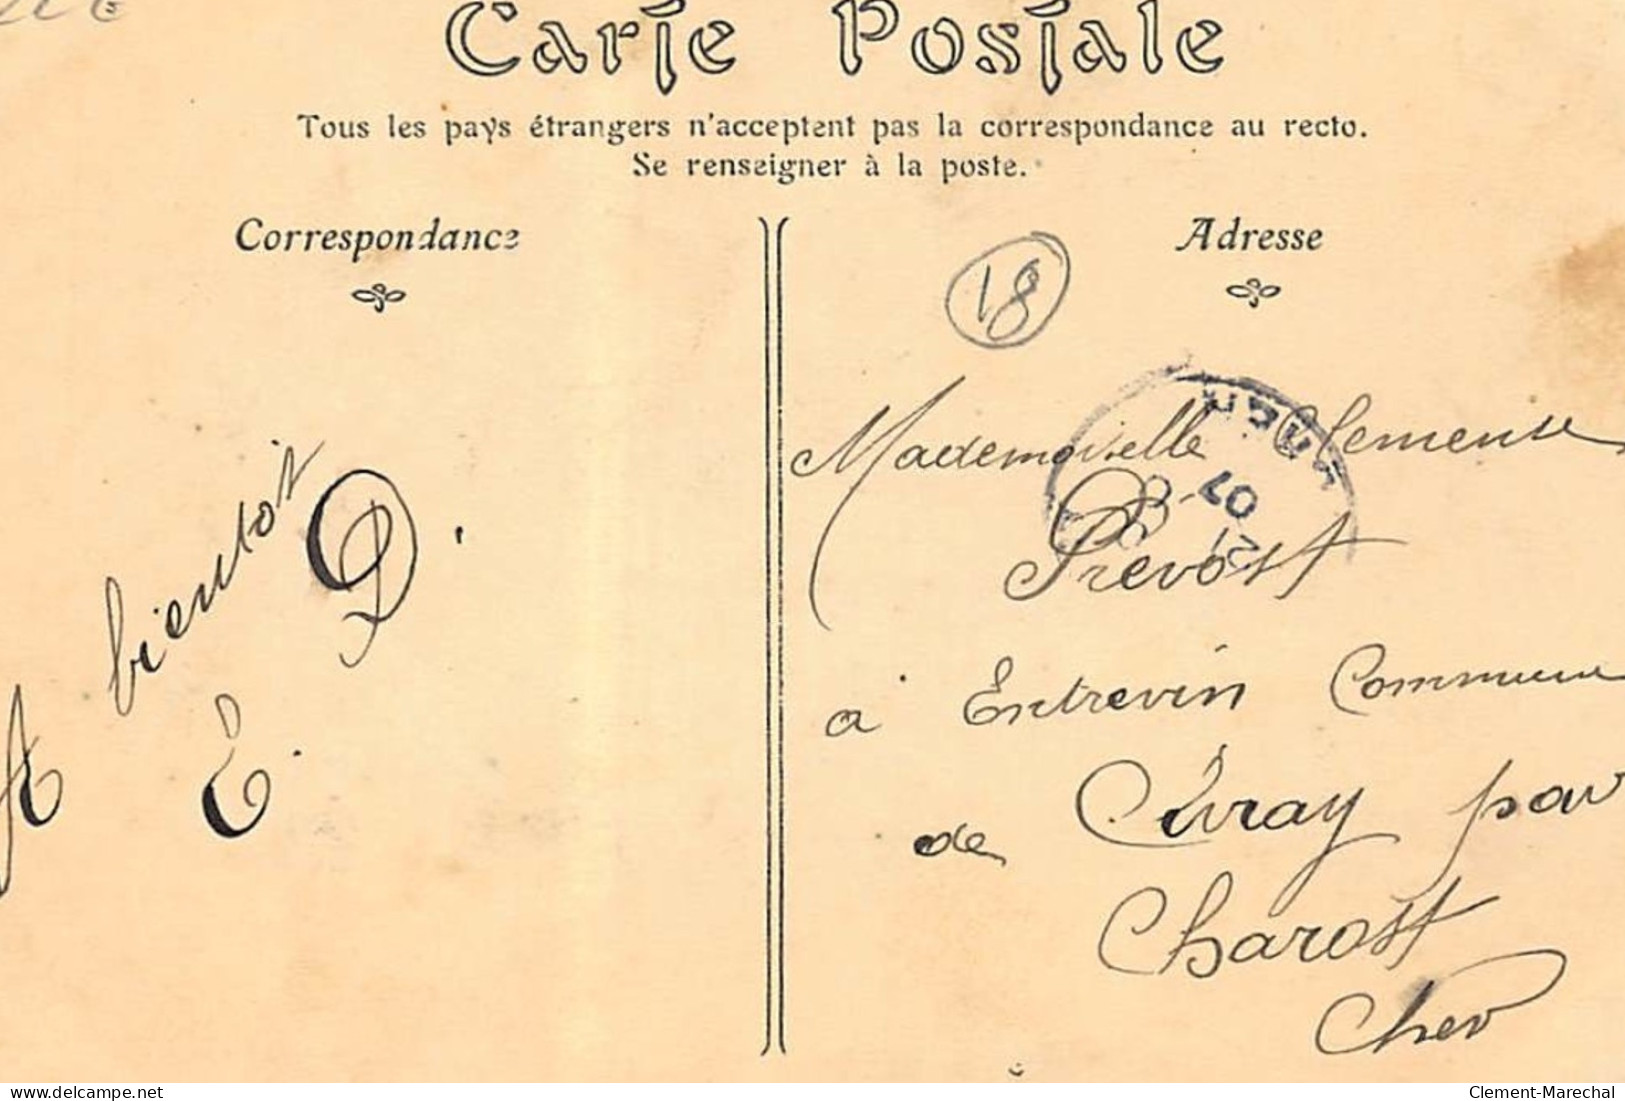 Carte Postale
Tous les pays étrangers n'acceptent pas la correspondance au recto.
Se renseigner à la poste.
Correspondance
Adresse
18
A bientot
E. P.
Mademoiselle Clemence
Prevost
07
21
a Entrevin Commune
de Civray par
Charost
Cher
delcampe.net
Clement-Marechal